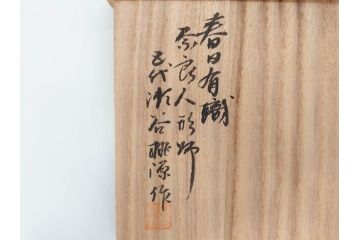 春日有職
奈良人形師
五代瀬谷桃源作